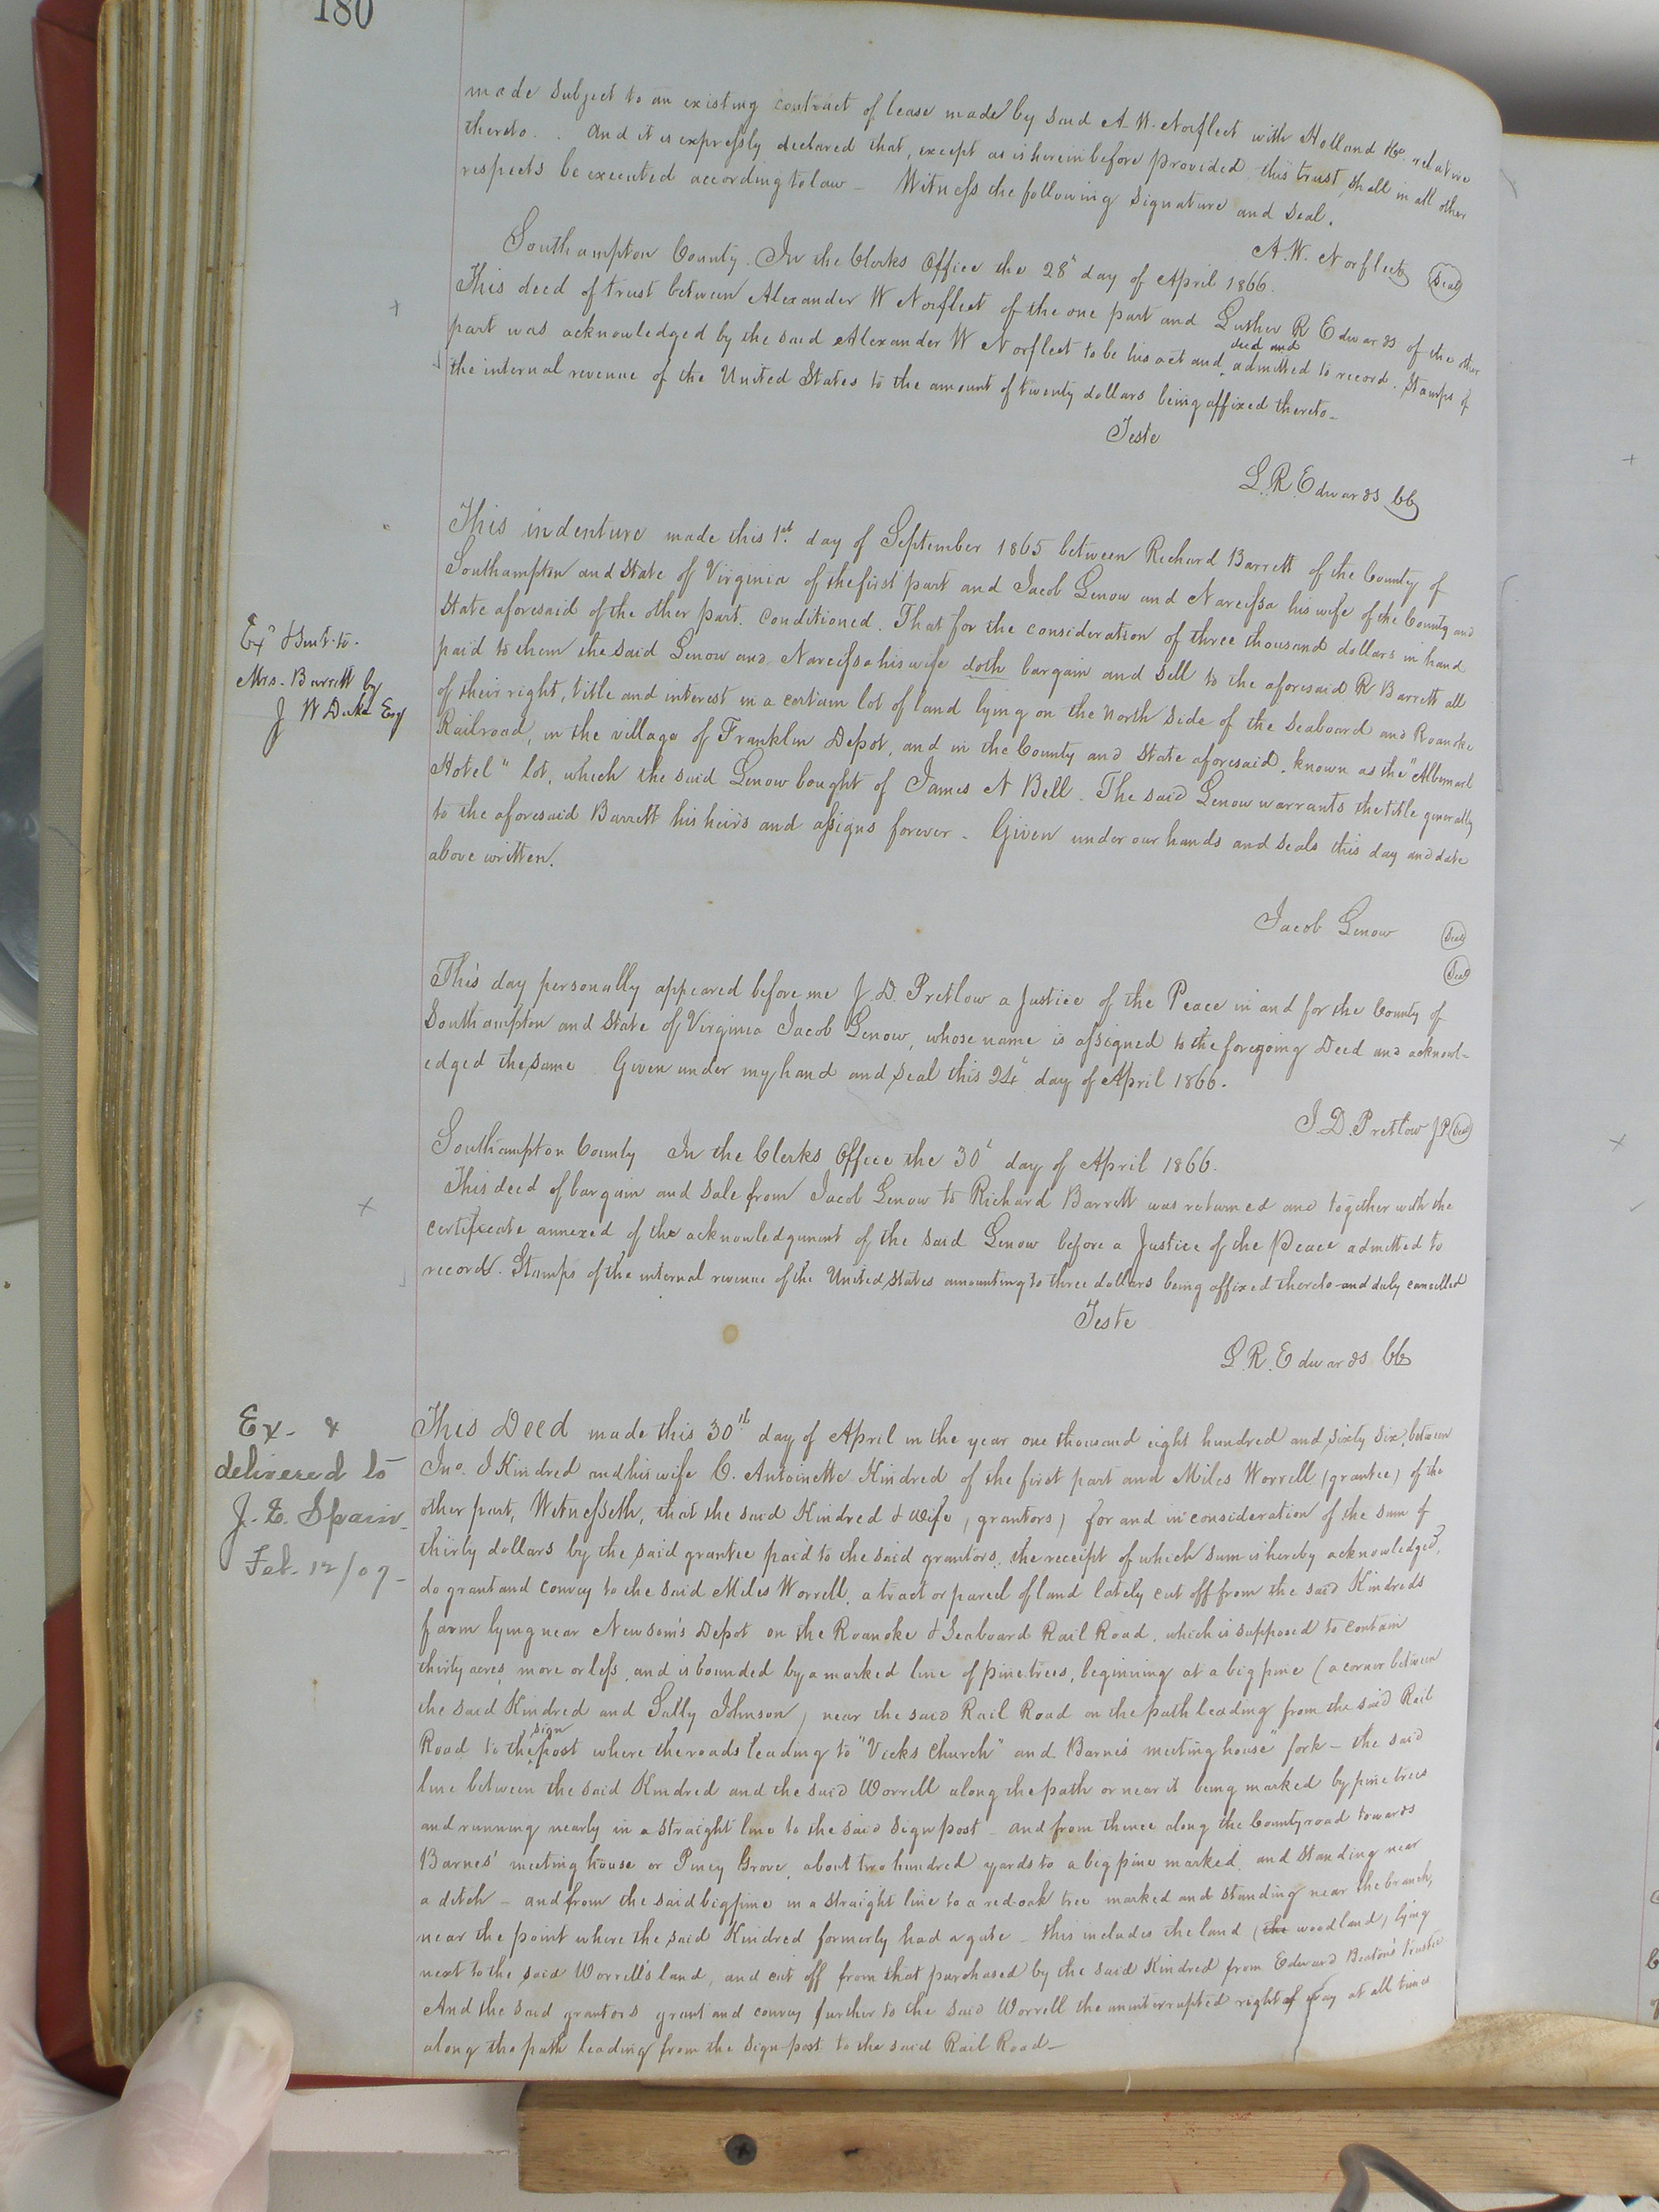 180
made subject to an existing contract of lease made by said A. W. Norfleet with Holland &Co. relative
thereto. . And it is expressly declared that, except as is hereinbefore provided this trust, shall in all other
respects be executed according to law — Witness the following signature and seal.
A. W. Norfleet (Seal)
Southampton County. In the Clerks Office the 28th day of April 1866.
This deed of trust between Alexander W Norfleet of the one part and Luther R Edwards of the other
part was acknowledged by the said Alexander W Norfleet to be his act and deed and admitted to record. Stamps of
the internal revenue of the United States to the amount of twenty dollars being affixed thereto—
Teste
L. R. Edwards CC
Exd & Sent to
Mrs. Barrett by
J W Duke Esq
This indenture made this 1st. day of September 1865 between Richard Barrett of the County of
Southampton and State of Virginia of the first part and Jacob Lenow and Narcissa his wife of the County and
State aforesaid of the other part. Conditioned. That for the consideration of three thousand dollars in hand
paid to them the said Lenow and Narcissa his wife doth bargain and sell to the aforesaid R Barrett all
of their right, title and interest in a certain lot of land lying on the North side of the Seaboard and Roanoke
Railroad, in the village of Franklin Depot, and in the County and State aforesaid, known as the "Albemarl
Hotel" lot, which the said Lenow bought of James N Bell. The said Lenow warrants the title generally
to the aforesaid Barrett his heirs and assigns forever. Given under our hands and seals this day and date
above written.
Jacob Lenow (Seal)
(Seal)
This day personally appeared before me J. D. Pretlow a Justice of the Peace in and for the County of
Southampton and State of Virginia Jacob Lenow, whose name is assigned to the foregoing Deed and acknowl-
edged the same Given under my hand and seal this 24th day of April 1866.
J. D. Pretlow JP (Seal)
Southampton County In the Clerks Office the 30th day of April 1866.
This deed of bargain and sale from Jacob Lenow to Richard Barrett was returned and together with the
certificate annexed of the acknowledgment of the said Lenow before a Justice of the Peace admitted to
record. Stamps of the internal revenue of the United States amounting to three dollars being affixed thereto and duly cancelled
Teste
L. R. Edwards CC
Ex. &
delivered to
J. E. Spain
Feb. 12/07 -
This Deed made this 30th day of April in the year one thousand eight hundred and sixty six, between
Jno. J Kindred and his wife C. Antoinette Kindred of the first part and Miles Worrell (grantee) of the
other part, Witnesseth, that the said Kindred & wife, (grantors) for and in consideration of the sum of
thirty dollars by the said grantee paid to the said grantors, the receipt of which sum is hereby acknowledged,
do grant and convey to the said Miles Worrell, a tract or parcel of land lately cut off from the said Kindreds
farm lying near Newsom's Depot on the Roanoke & Seaboard Rail Road, which is supposed to contain
thirty acres, more or less, and is bounded by a marked line of pine trees, beginning at a big pine (a corner between
the said Kindred and Sally Johnson) near the said Rail Road on the path leading from the said Rail
Road to the sign post where the roads leading to "Vicks Church" and Barnes' meeting house" fork — the said
line between the said Kindred and the said Worrell along the path or near it being marked by pine trees
and running nearly in a straight line to the said sign post — and from thence along the County road towards
Barnes' meeting house or Piney Grove, about two hundred yards to a big pine marked, and standing near
a ditch — and from the said big pine in a straight line to a red-oak tree marked and standing near the branch,
near the point where the said Kindred formerly had a gate — this includes the land (the woodland) lying
next to the said Worrell's land, and cut off from that purchased by the said Kindred from Edward Beaton's trustee
And the said grantors grant and convey further to the said Worrell the uninterrupted right of way at all times
along the path leading from the sign post to the said Rail Road —